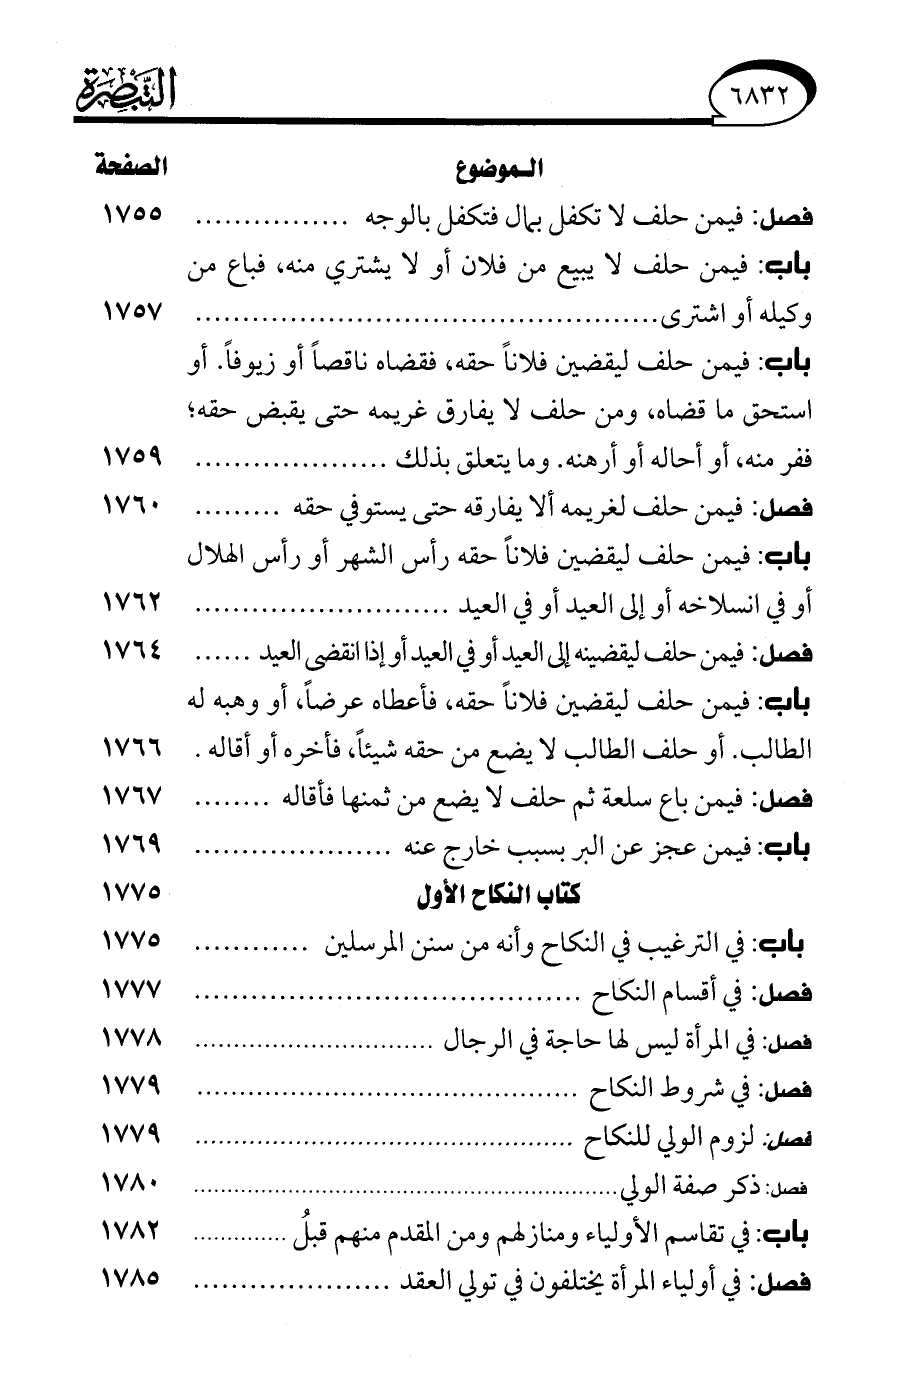 ٦٨٣٢ التبصرة
الـموضوع الصفحة
فصل: فيمن حلف لا تكفل بمال فتكفل بالوجه ................ ١٧٥٥
باب: فيمن حلف لا يبيع من فلان أو لا يشتري منه، فباع من
وكيله أو اشترى................................................ ١٧٥٧
باب: فيمن حلف ليقضين فلاناً حقه، فقضاه ناقصاً أو زيوفاً. أو
استحق ما قضاه، ومن حلف لا يفارق غريمه حتى يقبض حقه؛
ففر منه، أو أحاله أو أرهنه. وما يتعلق بذلك .................... ١٧٥٩
فصل: فيمن حلف لغريمه ألا يفارقه حتى يستوفي حقه ......... ١٧٦٠
باب: فيمن حلف ليقضين فلاناً حقه رأس الشهر أو رأس الهلال
أو في انسلاخه أو إلى العيد أو في العيد ........................... ١٧٦٢
فصل: فيمن حلف ليقضينه إلى العيد أو في العيد أو إذا انقضى العيد ...... ١٧٦٤
باب: فيمن حلف ليقضين فلاناً حقه، فأعطاه عرضاً، أو وهبه له
الطالب. أو حلف الطالب لا يضع من حقه شيئاً، فأخره أو أقاله . ١٧٦٦
فصل: فيمن باع سلعة ثم حلف لا يضع من ثمنها فأقاله ........ ١٧٦٧
باب: فيمن عجز عن البر بسبب خارج عنه ..................... ١٧٦٩
كتاب النكاح الأول ١٧٧٥
باب: في الترغيب في النكاح وأنه من سنن المرسلين ............ ١٧٧٥
فصل: في أقسام النكاح ......................................... ١٧٧٧
فصل: في المرأة ليس لها حاجة في الرجال ............................... ١٧٧٨
فصل: في شروط النكاح ......................................... ١٧٧٩
فصل: لزوم الولي للنكاح .................................................. ١٧٧٩
فصل: ذكر صفة الولي............................................................. ١٧٨٠
باب: في تقاسم الأولياء ومنازلهم ومن المقدم منهم قبلُ .............. ١٧٨٢
فصل: في أولياء المرأة يختلفون في تولي العقد ..................... ١٧٨٥